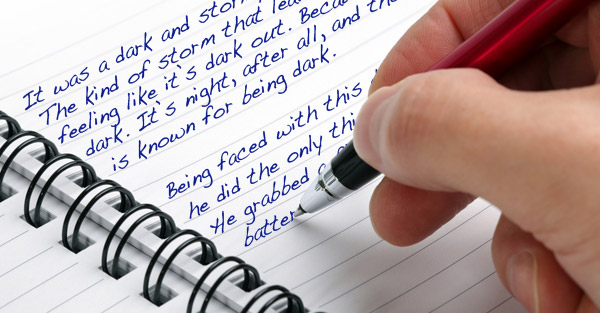 It was a dark and
The kind of storm that
feeling like it's dark out.
dark. It's night, after all, and the
is known for being dark.
Being faced with this
he did the only
He grabbed
batter